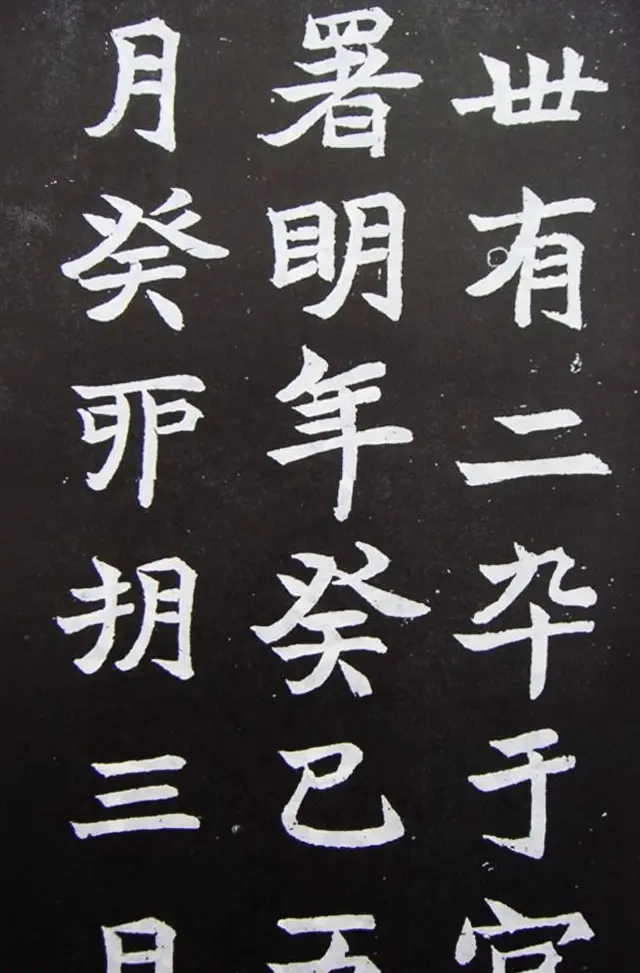 丗有二卆于官
署明年癸巳五
月癸卯朔三日